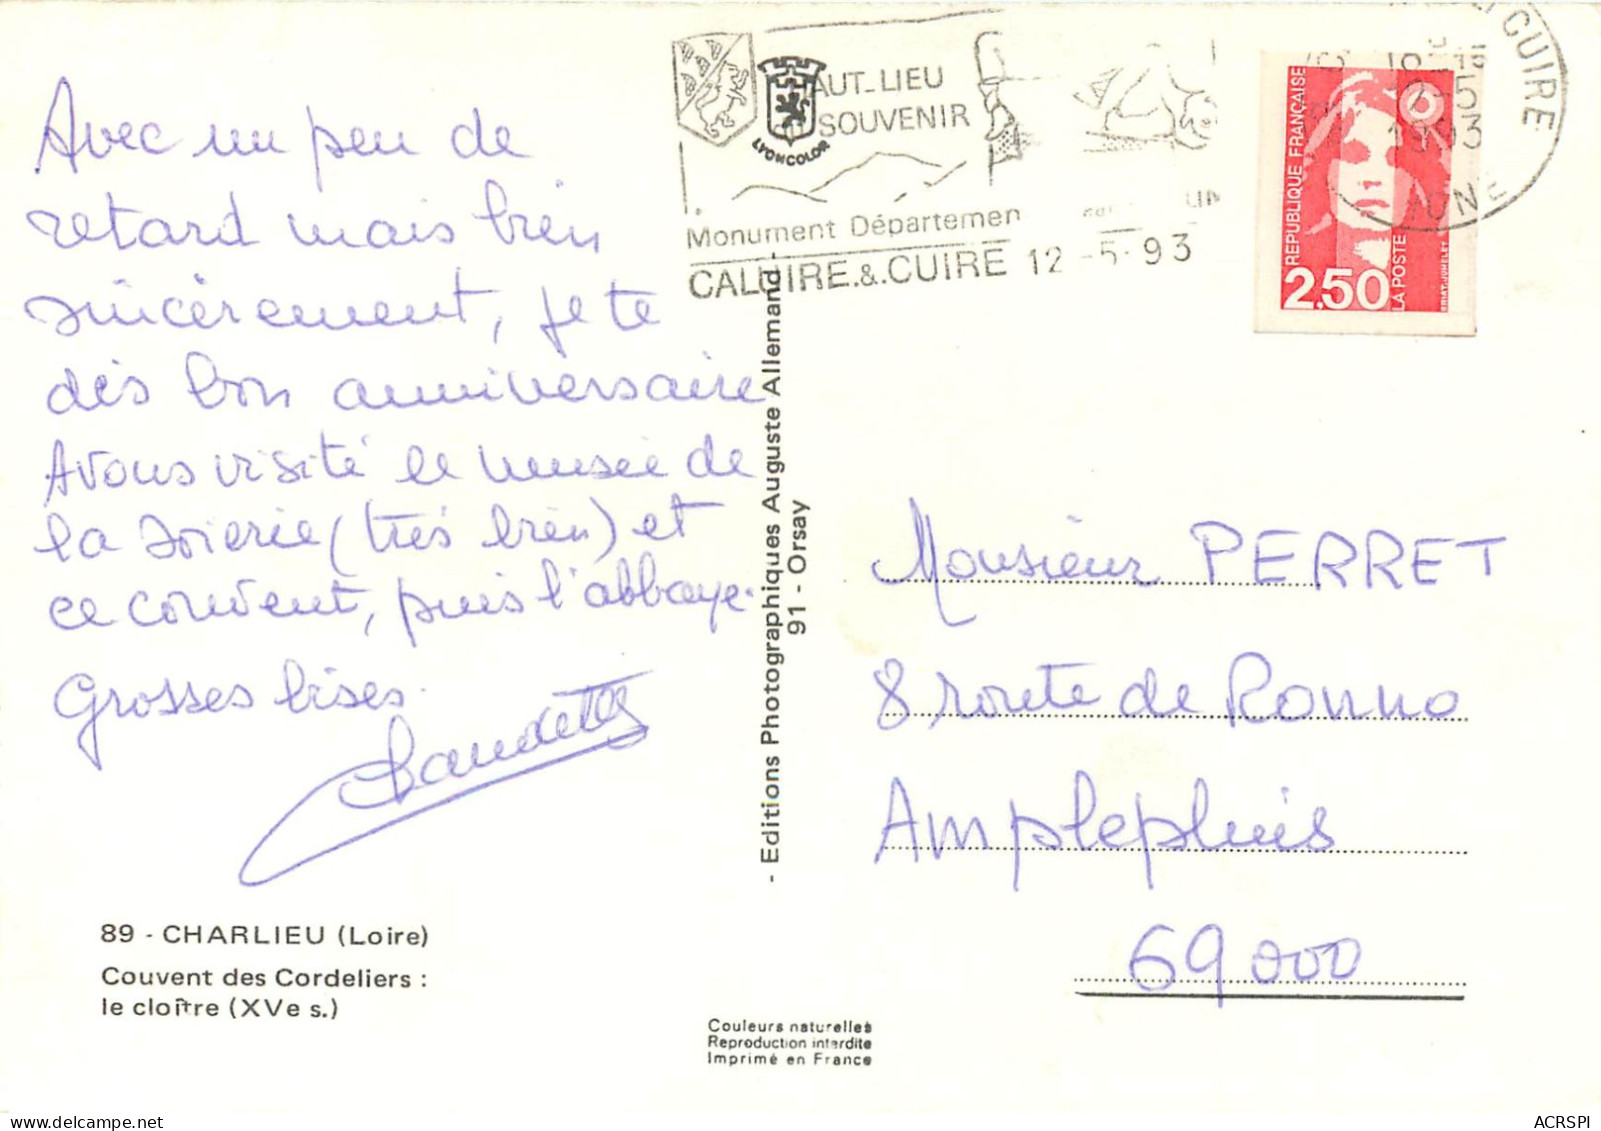 Avec un peu de
retard mais bien
sincèrement, je te
dis bon anniversaire
Avons visité le musée de
la soierie (très bien) et
ce couvent, puis l'abbaye.
Grosses bises.
89 - CHARLIEU (Loire)
Couvent des Cordeliers :
le cloître (XVe s.)
- Editions Photographiques Auguste Allemand -
91 - Orsay
Couleurs naturelles
Reproduction interdite
Imprimé en France
AUT-LIEU
SOUVENIR
LYONCOLOR
Monument Départemen
CALUIRE.&.CUIRE 12 -5- 93
CUIRE
1993
REPUBLIQUE FRANÇAISE
2,50
LA POSTE
Monsieur PERRET
8 route de Ronno
Amplepluis
69000
ACRSPI